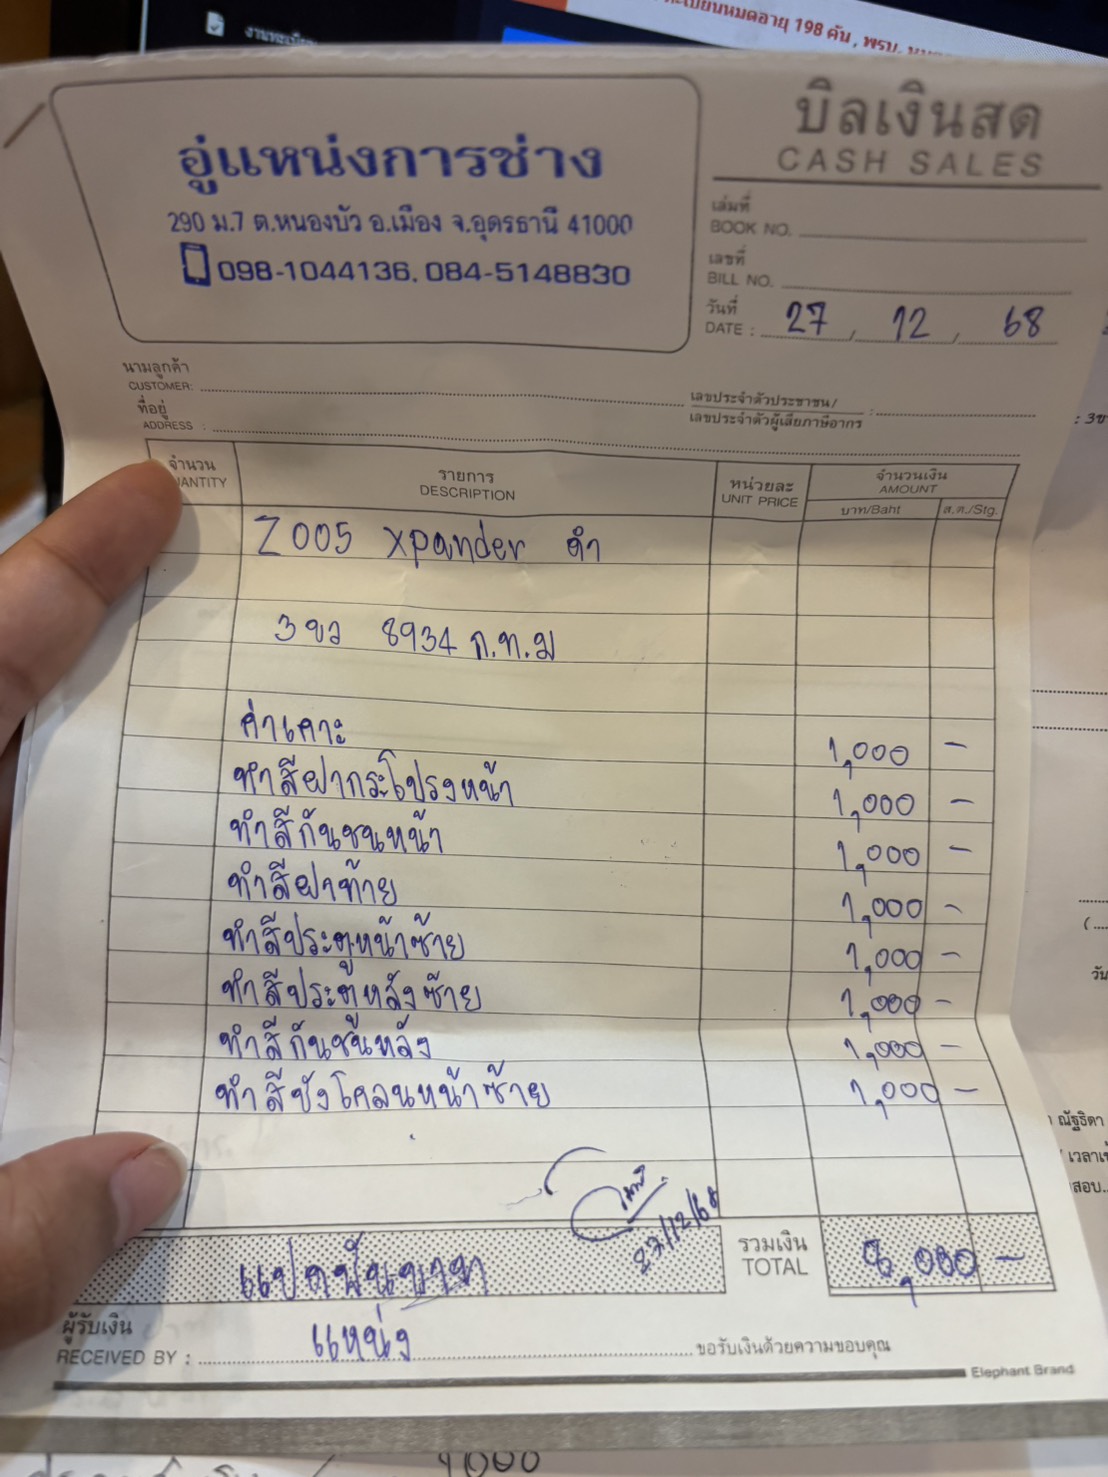 งานทะเบียน
ทะเบียนหมดอายุ 198 คัน , พรบ.
อู่แหน่งการช่าง
290 ม.7 ต.หนองบัว อ.เมือง จ.อุดรธานี 41000
098-1044136. 084-5148830
บิลเงินสด
CASH SALES
เล่มที่
BOOK NO.
เลขที่
BILL NO.
วันที่
DATE : 27 , 12 , 68
นามลูกค้า
CUSTOMER:
เลขประจำตัวประชาชน/ :
เลขประจำตัวผู้เสียภาษีอากร
ที่อยู่
ADDRESS :
: 3ข
จำนวน รายการ หน่วยละ จำนวนเงิน
QUANTITY DESCRIPTION UNIT PRICE AMOUNT
บาท/Baht ส.ต./Stg.
Z005 Xpander ดำ
3ขว 8934 ก.ท.ม
ค่าเคาะ 1,000 -
ทำสีฝากระโปรงหน้า 1,000 -
ทำสีกันชนหน้า 1,000 -
ทำสีฝาท้าย 1,000 -
ทำสีประตูหน้าซ้าย 1,000 -
ทำสีประตูหลังซ้าย 1,000 -
ทำสีกันชนหลัง 1,000 -
ทำสีบังโคลนหน้าซ้าย 1,000 -
27/12/68
แปดพันบาท รวมเงิน 8,000 -
TOTAL
ผู้รับเงิน
RECEIVED BY : แหน่ง ขอรับเงินด้วยความขอบคุณ
Elephant Brand
วัน
ณัฐธิดา
เวลาเข้
สอบ..
1000